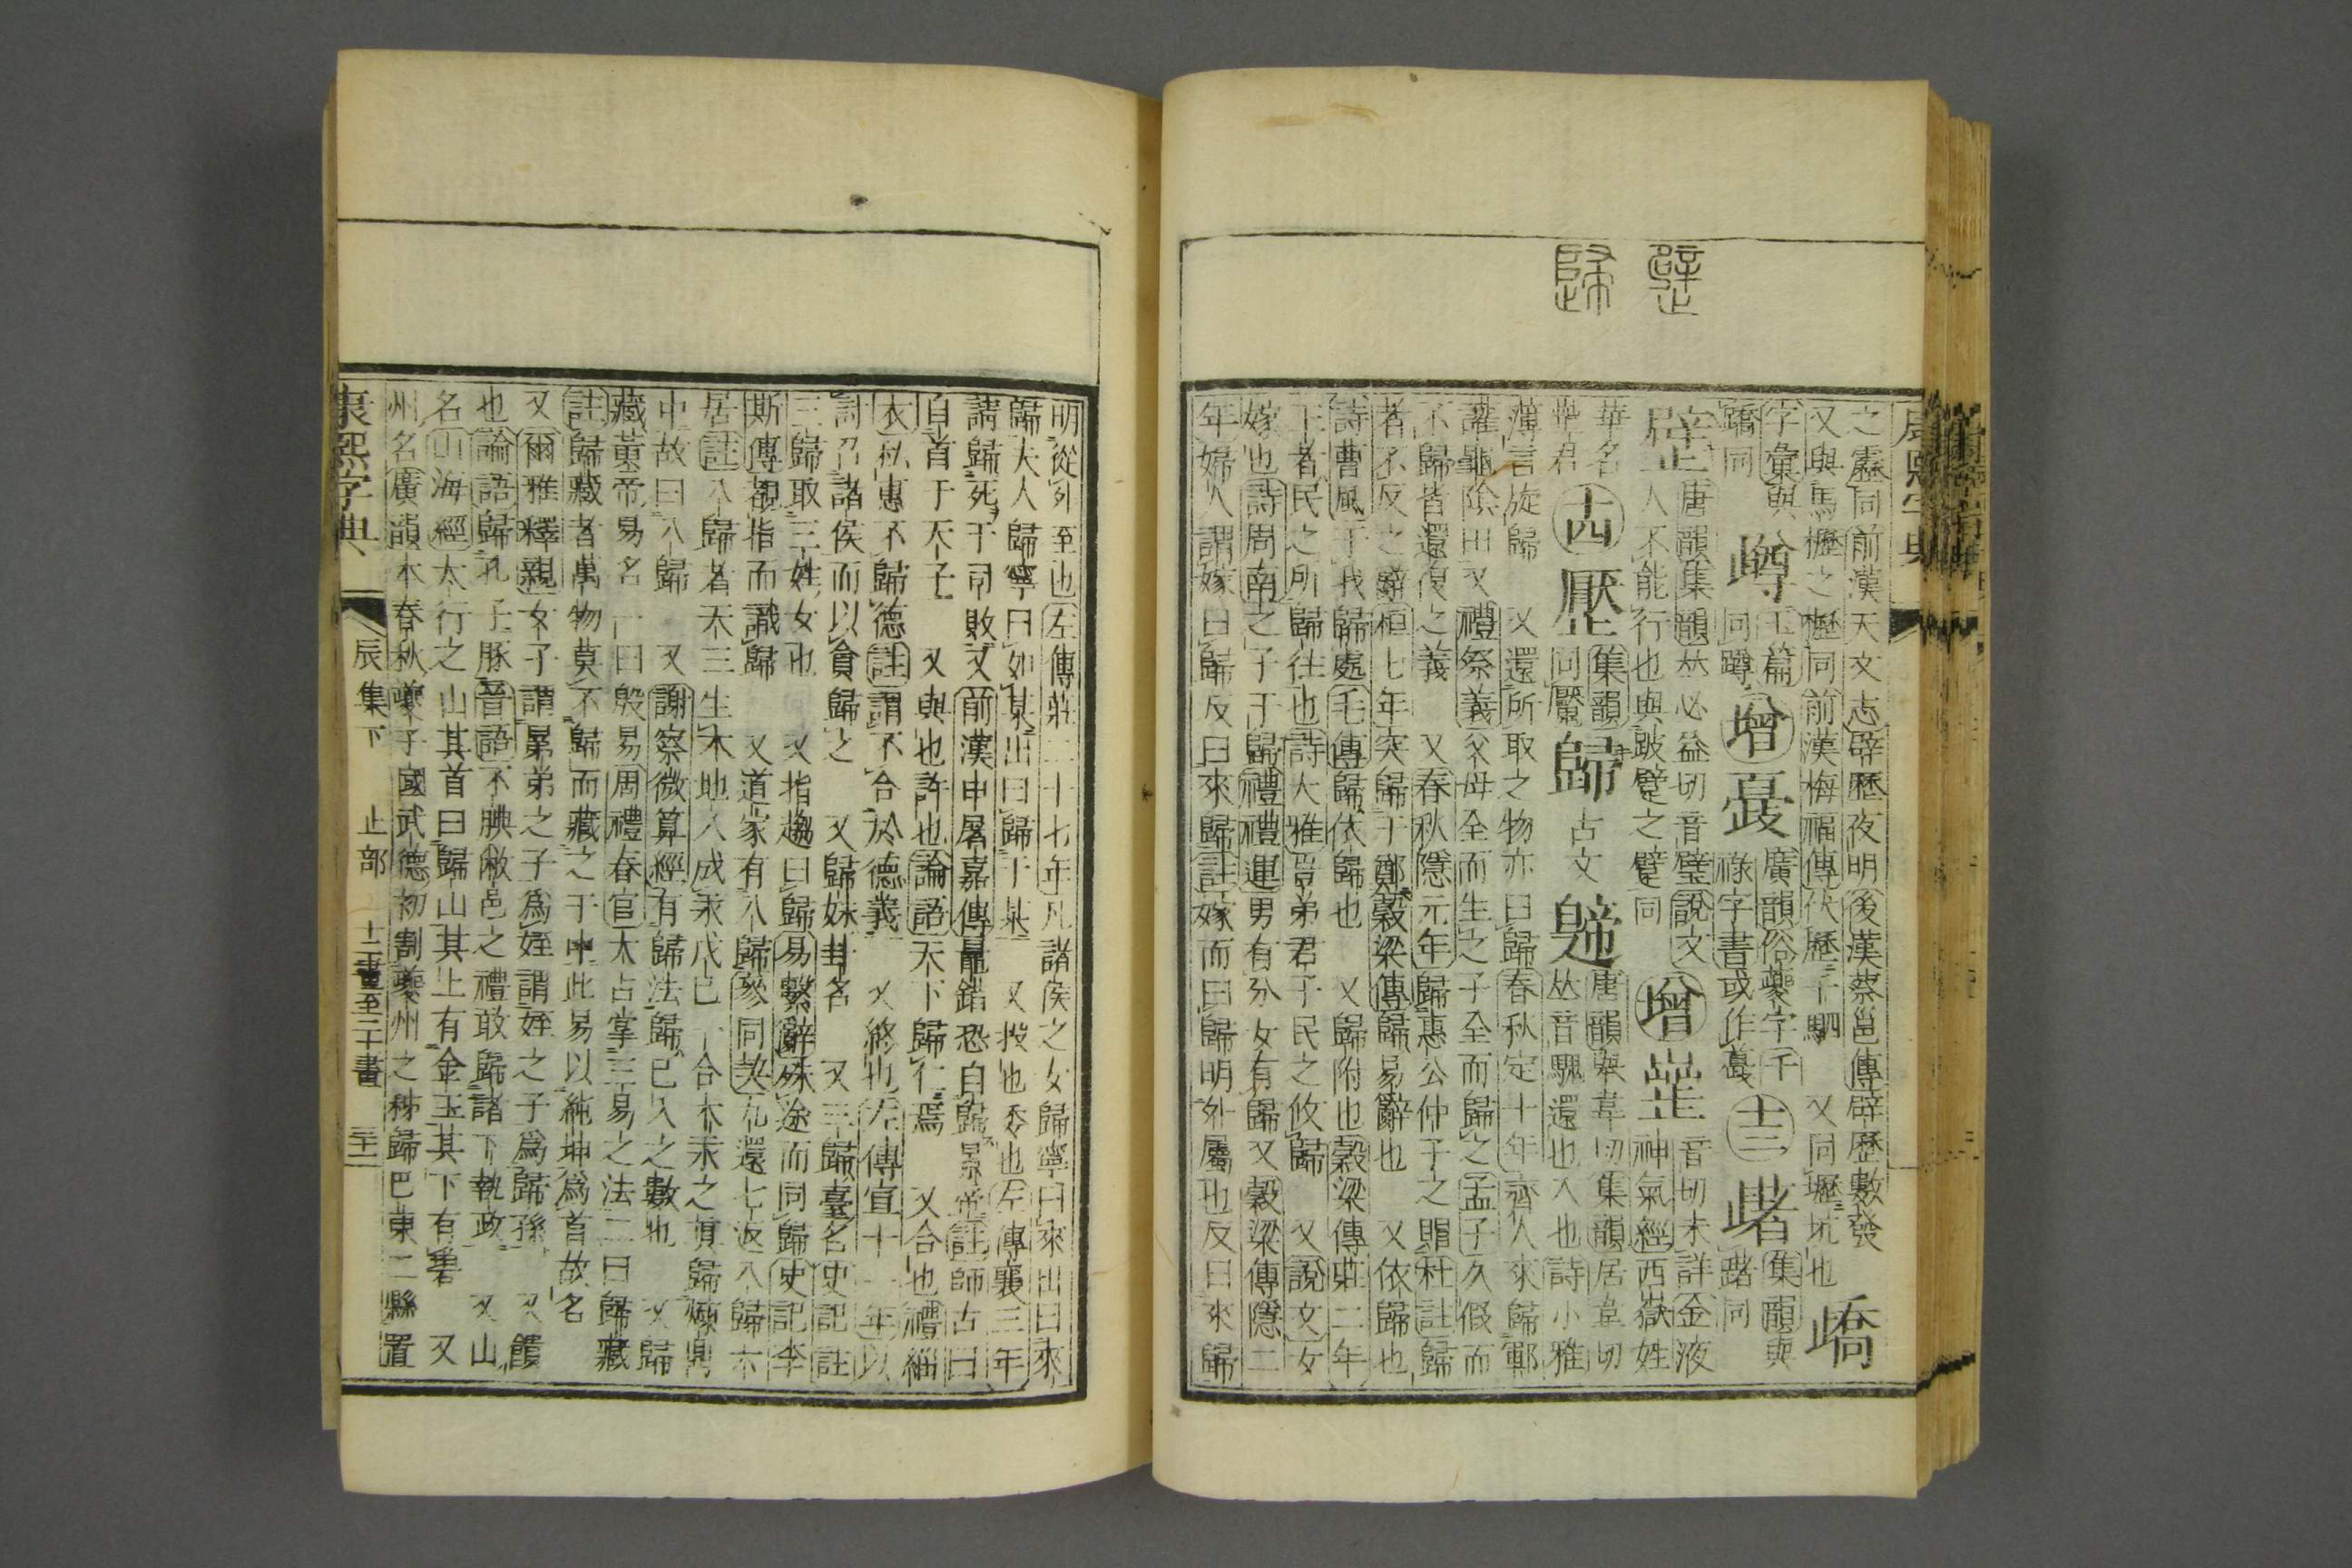 壁
歸
康熙字典
之歷同前漢天文志辟歷夜明後漢蔡邕傳辟歷數發
又與馬櫪之櫪同前漢梅福傳伏歷千駟 又同壢坑也 㠐
字彙與
蹻同
玉篇
同蹲
增
廣韻俗夔字千
祿字書或作
十三
集韻與
躇同
躄
唐韻集韻𠀤必益切音璧說文
人不能行也與跛躄之躄同
增
音切未詳金液
神氣經西嶽姓
華名
君
十四
歷
集韻
同
歸
古文
唐韻舉韋切集韻居韋切
𠀤音騩還也入也詩小雅
薄言旋歸 又還所取之物亦曰歸春秋定十年齊人來歸鄆
讙龜陰田又禮祭義父母全而生之子全而歸之孟子久假而
不歸皆還復之義 又春秋隱元年歸惠公仲子之賵杜註歸
者不反之辭桓七年突歸于鄭穀梁傳歸易辭也 又依歸也
詩曹風于我歸處毛傳歸依歸也 又歸附也穀梁傳莊二年
王者民之所歸往也詩大雅豈弟君子民之攸歸 又說文女
嫁也詩周南之子于歸禮禮運男有分女有歸又穀梁傳隱二
年婦人謂嫁曰歸反曰來歸註嫁而曰歸明外屬也反曰來歸
明從外至也左傳莊二十七年凡諸侯之女歸寧曰來出曰來
歸夫人歸寧曰如某出曰歸于某 又投也委也左傳襄三年
請歸死于司敗又前漢申屠嘉傳鼂錯恐自歸景帝註師古曰
自首于天子 又與也許也論語天下歸仁焉 又合也禮緇
衣私惠不歸德註謂不合於德義 又終也左傳宣十一年以
討召諸侯而以貪歸之 又歸妹卦名 又三歸臺名史記註
三歸取三姓女也 又指趨曰歸易繫辭殊途而同歸史記李
斯傳觀指而識歸 又道家有八歸參同契九還七返八歸六
居註八歸者天三生木地八成汞戊己一合木汞之眞歸煉鼎
中故曰八歸 又謝察微算經有歸法歸已入之數也 又歸
藏黃帝易名一曰殷易周禮春官太占掌三易之法二曰歸藏
註歸藏者萬物莫不歸而藏之于中此易以純坤爲首故名
又爾雅釋親女子謂晜弟之子爲姪謂姪之子爲歸孫 又饋
也論語歸孔子豚晉語不腆敝邑之禮敢歸諸下執政 又山
名山海經太行之山其首曰歸山其上有金玉其下有碧 又
州名廣韻本春秋夔子國武德初割夔州之秭歸巴東二縣置
康熙字典 辰集下 止部 十二畫至二十畫 二十二